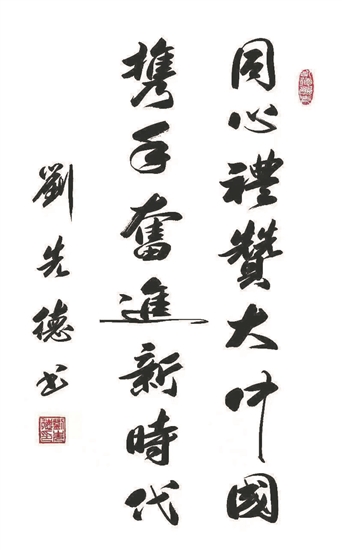 同心禮贊大中國
攜手奮進新時代
劉先德书